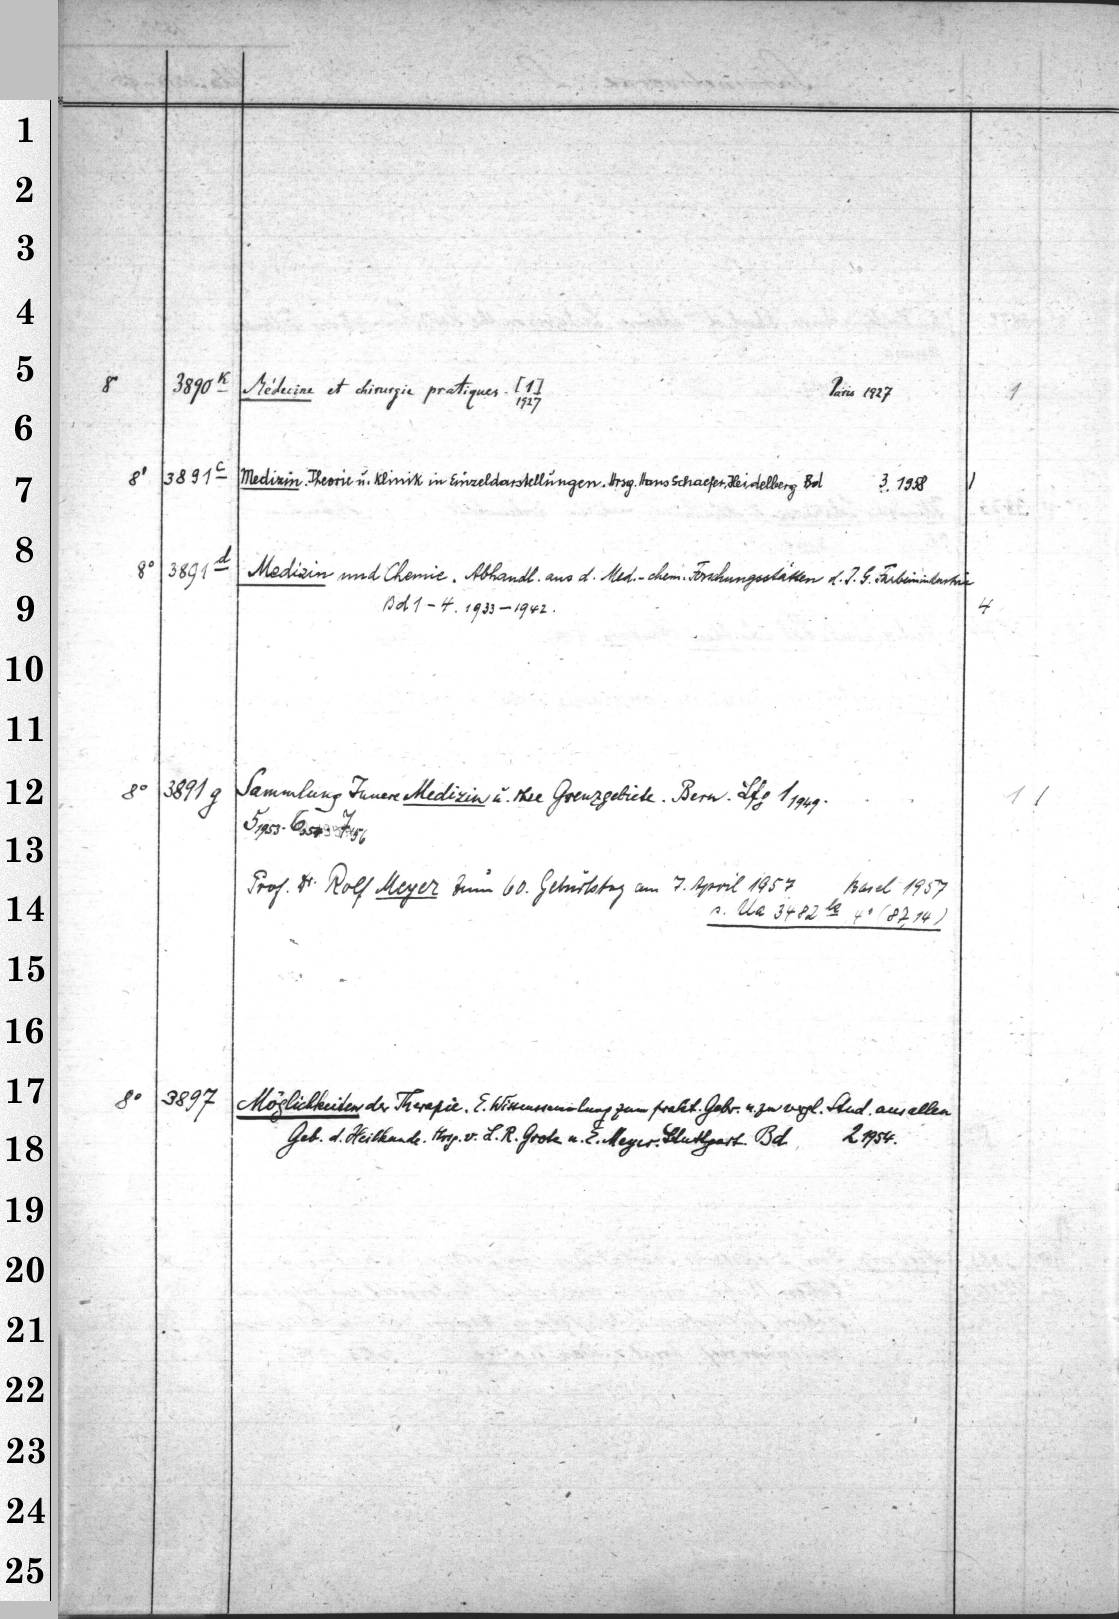 1
2
3
4
5
8° 3890 k Médecine et chirurgie pratiques. [1] 1927 Paris 1927 1
6
7
8° 3891 c Medizin. Theorie u. Klinik in Einzeldarstellungen. Hrsg. Hans Schaefer, Heidelberg Bd 3. 1958 1
8
8° 3891 d Medizin und Chemie. Abhandl. aus d. Med.-chem. Forschungsstätten d. I. G. Farbenindustrie
9
Bd 1-4. 1933-1942. 4
10
11
12
8° 3891 g Sammlung Innere Medizin u. ihre Grenzgebiete. Bern. Lfg 1 1949. 1 1
5 1953. 6 7 1956
13
14
Prof. Dr. Rolf Meyer zum 60. Geburtstag am 7. April 1957 Basel 1957
s. Ua 3482 4° (87,14)
15
16
17
8° 3897 Möglichkeiten der Therapie. E. Wissenssammlung zum prakt. Gebr. u. zu vergl. Stud. aus allen
18
Geb. d. Heilkunde. Hrsg. v. L. R. Grote u. E. Meyer. Stuttgart. Bd 2 1954.
19
20
21
22
23
24
25